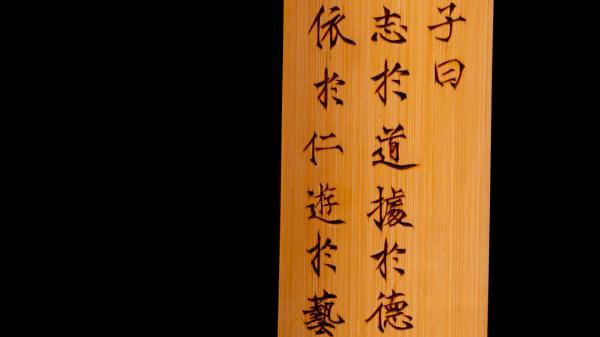 子曰
志於道據於德
依於仁遊於藝